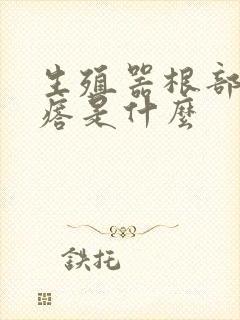 生殖器根部
痞是什麼
鉄托